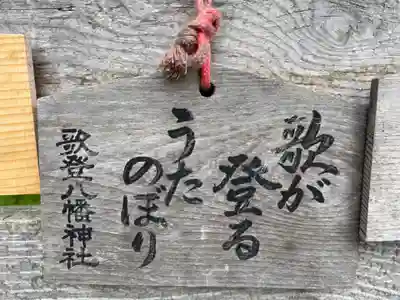 歌が
登る
うた
のぼり
歌登八幡神社